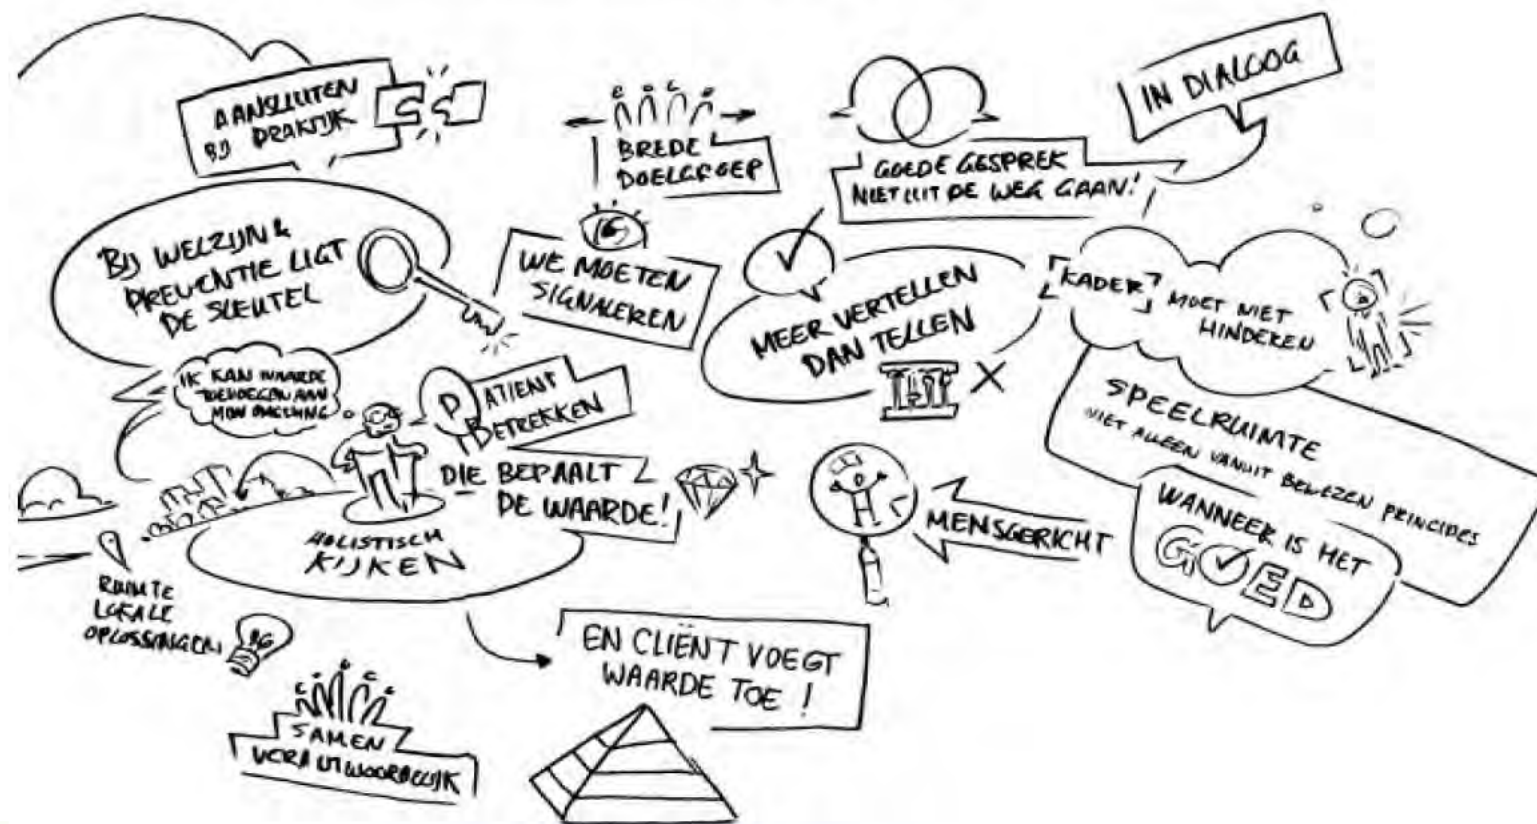 AANSLUITEN
BIJ PRAKTIJK
BREDE
DOELGROEP
GOEDE GESPREK
NIET UIT DE WEG GAAN!
IN DIALOOG
BIJ WELZIJN &
PREVENTIE LIGT
DE SLEUTEL
WE MOETEN
SIGNALEREN
MEER VERTELLEN
DAN TELLEN
KADER MOET NIET
HINDEREN
IK KAN WAARDE
TOEVOEGEN AAN
MIJN OMGEVING
PATIENT
BETREKKEN
DIE BEPAALT
DE WAARDE!
SPEELRUIMTE
NIET ALLEEN VANUIT BEWEZEN PRINCIPES
WANNEER IS HET
GOED
MENSGERICHT
HOLISTISCH
KIJKEN
RUIMTE
LOKALE
OPLOSSINGEN
EN CLIËNT VOEGT
WAARDE TOE!
SAMEN
VERANTWOORDELIJK